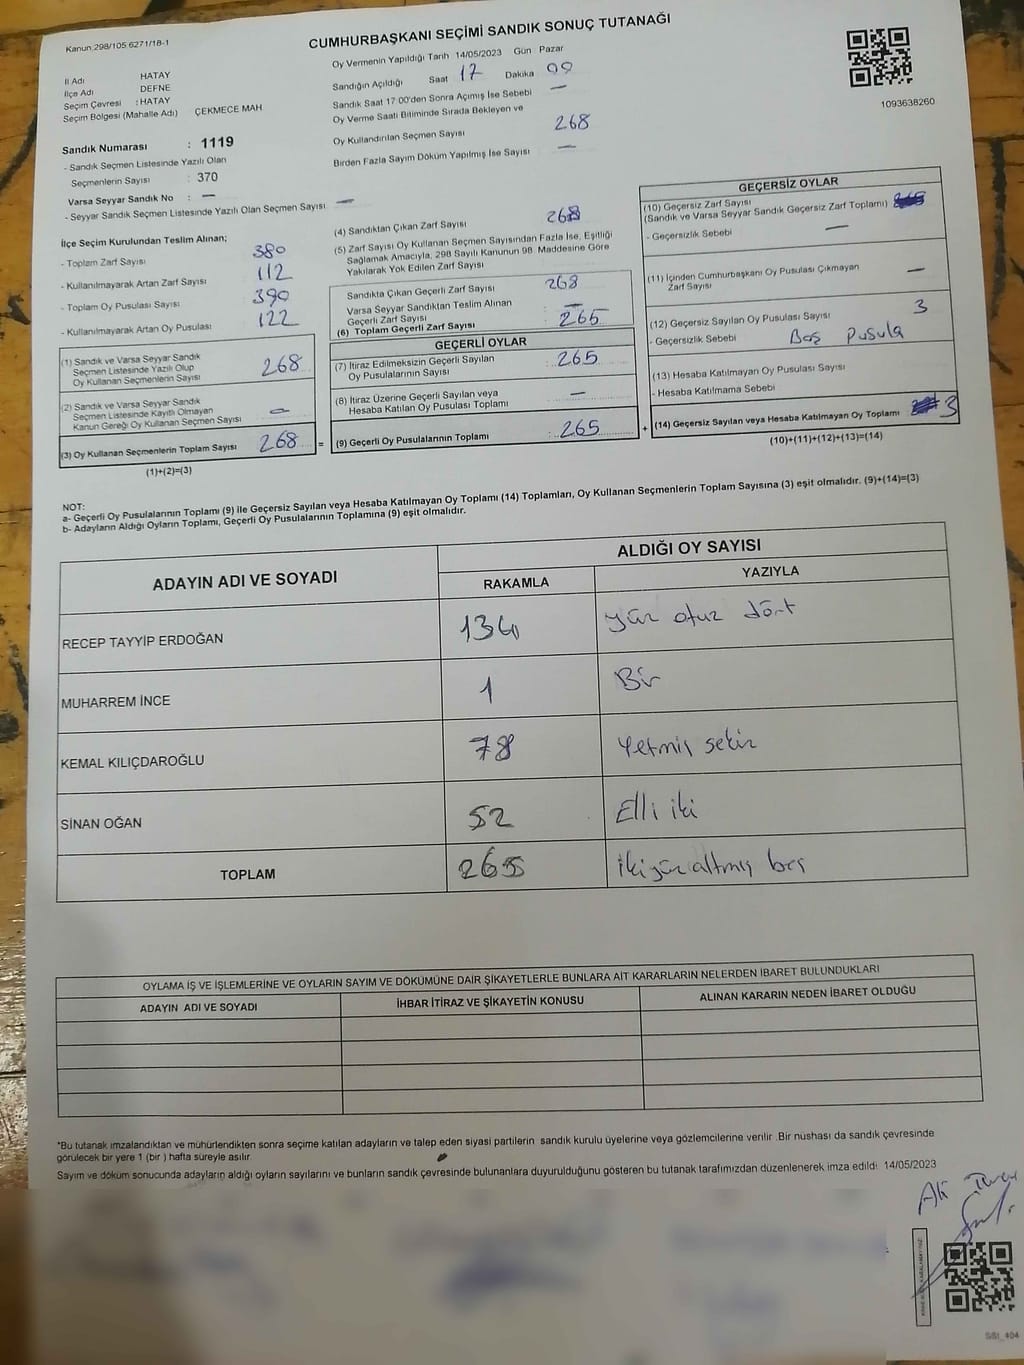 Kanun 298/105 6271/18-1
CUMHURBAŞKANI SEÇİMİ SANDIK SONUÇ TUTANAĞI
1093638260
İl Adı HATAY
İlçe Adı DEFNE
Seçim Çevresi : HATAY
Seçim Bölgesi (Mahalle Adı) ÇEKMECE MAH
Sandık Numarası : 1119
- Sandık Seçmen Listesinde Yazılı Olan
Seçmenlerin Sayısı : 370
Varsa Seyyar Sandık No : —
- Seyyar Sandık Seçmen Listesinde Yazılı Olan Seçmen Sayısı —
Oy Vermenin Yapıldığı Tarih 14/05/2023 Gün Pazar
Sandığın Açıldığı Saat 17 Dakika
Sandık Saat 17 00'den Sonra Açımış İse Sebebi —
Oy Verme Saati Bitiminde Sırada Bekleyen ve
Oy Kullandırılan Seçmen Sayısı 268
Birden Fazla Sayım Döküm Yapılmış İse Sayısı —
İlçe Seçim Kurulundan Teslim Alınan;
- Toplam Zarf Sayısı 380
- Kullanılmayarak Artan Zarf Sayısı 112
- Toplam Oy Pusulası Sayısı 390
- Kullanılmayarak Artan Oy Pusulası 122
(1) Sandık ve Varsa Seyyar Sandık
Seçmen Listesinde Yazılı Olup
Oy Kullanan Seçmenlerin Sayısı 268
(2) Sandık ve Varsa Seyyar Sandık
Seçmen Listesinde Kayıtlı Olmayan
Kanun Gereği Oy Kullanan Seçmen Sayısı —
(3) Oy Kullanan Seçmenlerin Toplam Sayısı 268 =
(1)+(2)=(3)
(4) Sandıktan Çıkan Zarf Sayısı 268
(5) Zarf Sayısı Oy Kullanan Seçmen Sayısından Fazla İse, Eşitliği
Sağlamak Amacıyla, 298 Sayılı Kanunun 98. Maddesine Göre
Yakılarak Yok Edilen Zarf Sayısı
Sandıkta Çıkan Geçerli Zarf Sayısı 268
Varsa Seyyar Sandıktan Teslim Alınan
Geçerli Zarf Sayısı : —
(6) Toplam Geçerli Zarf Sayısı 265
GEÇERLİ OYLAR
(7) İtiraz Edilmeksizin Geçerli Sayılan
Oy Pusulalarının Sayısı : 265
(8) İtiraz Üzerine Geçerli Sayılan veya
Hesaba Katılan Oy Pusulası Toplamı —
(9) Geçerli Oy Pusulalarının Toplamı : 265 +
GEÇERSİZ OYLAR
(10) Geçersiz Zarf Sayısı
(Sandık ve Varsa Seyyar Sandık Geçersiz Zarf Toplamı)
- Geçersizlik Sebebi —
(11) İçinden Cumhurbaşkanı Oy Pusulası Çıkmayan
Zarf Sayısı —
(12) Geçersiz Sayılan Oy Pusulası Sayısı 3
- Geçersizlik Sebebi Boş Pusula
(13) Hesaba Katılmayan Oy Pusulası Sayısı
- Hesaba Katılmama Sebebi
(14) Geçersiz Sayılan veya Hesaba Katılmayan Oy Toplamı 3
(10)+(11)+(12)+(13)=(14)
NOT:
a- Geçerli Oy Pusulalarının Toplamı (9) ile Geçersiz Sayılan veya Hesaba Katılmayan Oy Toplamı (14) Toplamları, Oy Kullanan Seçmenlerin Toplam Sayısına (3) eşit olmalıdır. (9)+(14)=(3)
b- Adayların Aldığı Oyların Toplamı, Geçerli Oy Pusulalarının Toplamına (9) eşit olmalıdır.
ADAYIN ADI VE SOYADI
ALDIĞI OY SAYISI
RAKAMLA YAZIYLA
RECEP TAYYİP ERDOĞAN 134 yüz otuz dört
MUHARREM İNCE 1 Bir
KEMAL KILIÇDAROĞLU 78 Yetmiş sekiz
SİNAN OĞAN 52 Elli iki
TOPLAM 265 ikiyüz altmış beş
OYLAMA İŞ VE İŞLEMLERİNE VE OYLARIN SAYIM VE DÖKÜMÜNE DAİR ŞİKAYETLERLE BUNLARA AİT KARARLARIN NELERDEN İBARET BULUNDUKLARI
ADAYIN ADI VE SOYADI İHBAR İTİRAZ VE ŞİKAYETİN KONUSU ALINAN KARARIN NEDEN İBARET OLDUĞU
*Bu tutanak imzalandıktan ve mühürlendikten sonra seçime katılan adayların ve talep eden siyasi partilerin sandık kurulu üyelerine veya gözlemcilerine verilir .Bir nüshası da sandık çevresinde
görülecek bir yere 1 (bir ) hafta süreyle asılır.
Sayım ve döküm sonucunda adayların aldığı oyların sayılarını ve bunların sandık çevresinde bulunanlara duyurulduğunu gösteren bu tutanak tarafımızdan düzenlenerek imza edildi 14/05/2023
Ali
SSI_404